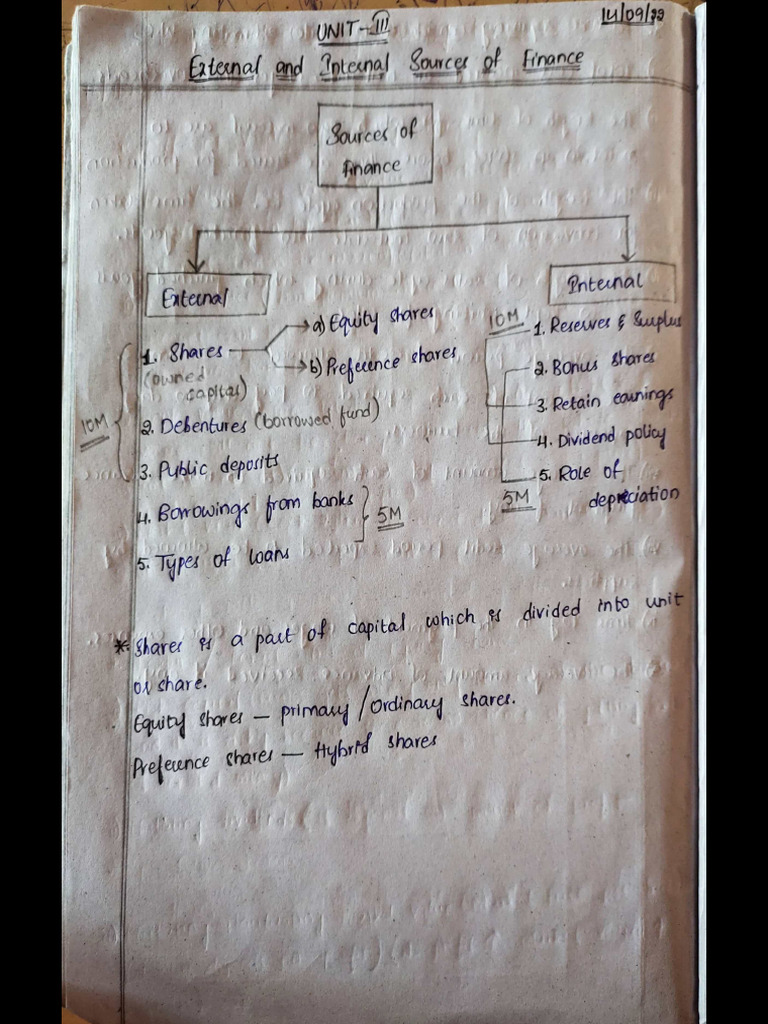 14/09/22
UNIT-III
External and Internal Sources of Finance
Sources of
finance
External
Internal
1. Shares
a) Equity shares
b) Preference shares
(owned
capital)
2. Debentures (borrowed fund)
3. Public deposits
10M
4. Borrowings from banks
5. Types of loans
5M
10M
1. Reserves & Surplus
2. Bonus shares
3. Retain earnings
4. Dividend policy
5. Role of
depreciation
5M
* Shares is a part of capital which is divided into unit
or share.
Equity shares – primary/Ordinary shares.
Preference shares — Hybrid shares